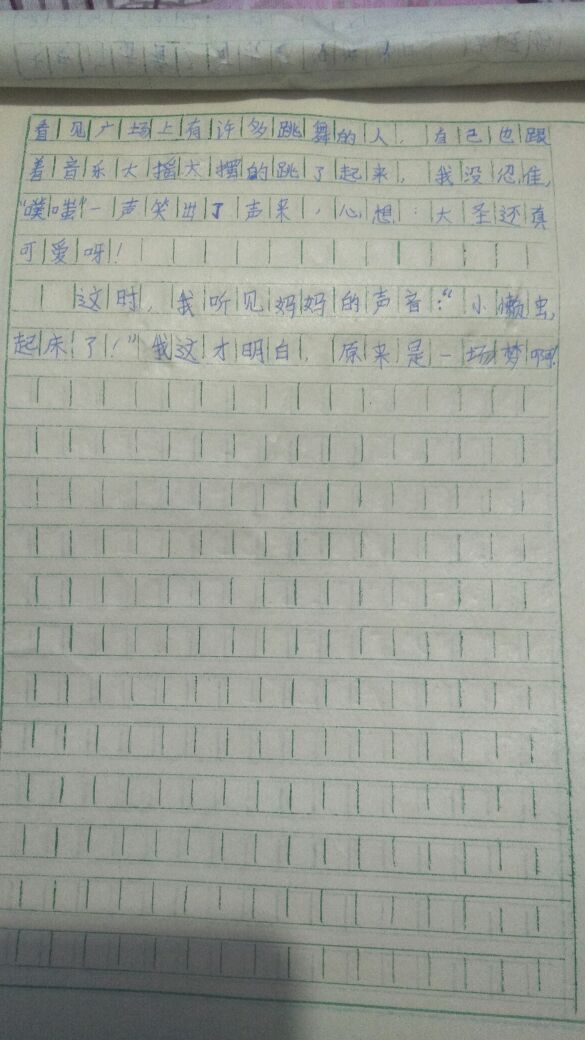 看见广场上有许多跳舞的人，自己也跟
着音乐大摇大摆的跳了起来，我没忍住，
“噗嗤”一声笑出了声来，心想：大圣还真
可爱呀！
这时，我听见妈妈的声音：“小懒虫，
起床了！”我这才明白，原来是一场梦啊！